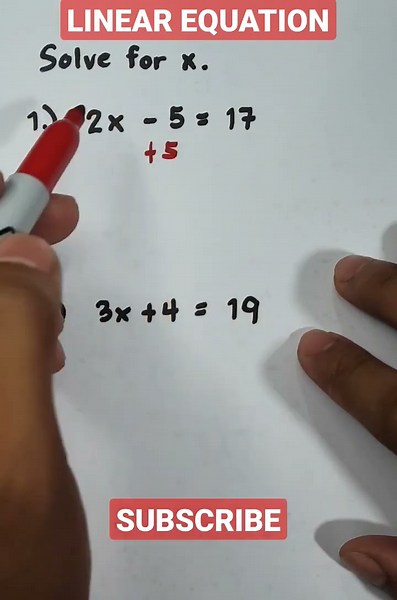 LINEAR EQUATION
Solve for x.
1.) 2x - 5 = 17
+5
) 3x + 4 = 19
SUBSCRIBE